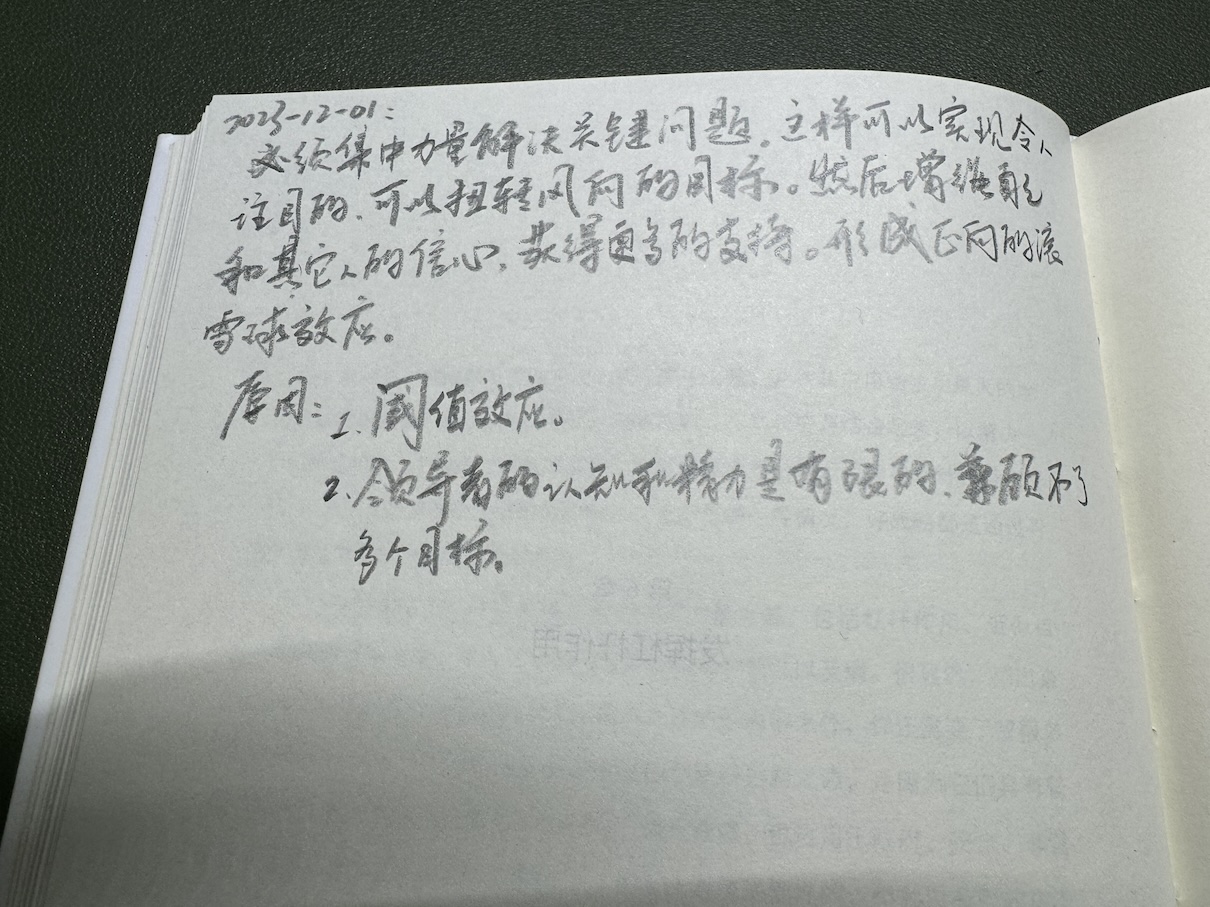 2023-12-01:
必须集中力量解决关键问题，这样可以实现令人
注目的、可以扭转风向的目标。然后增强自己
和其它人的信心，获得更多的支持。形成正向的滚
雪球效应。
原因：1. 阈值效应。
2. 领导者的认知和精力是有限的、兼顾不了
多个目标。
发挥杠杆作用